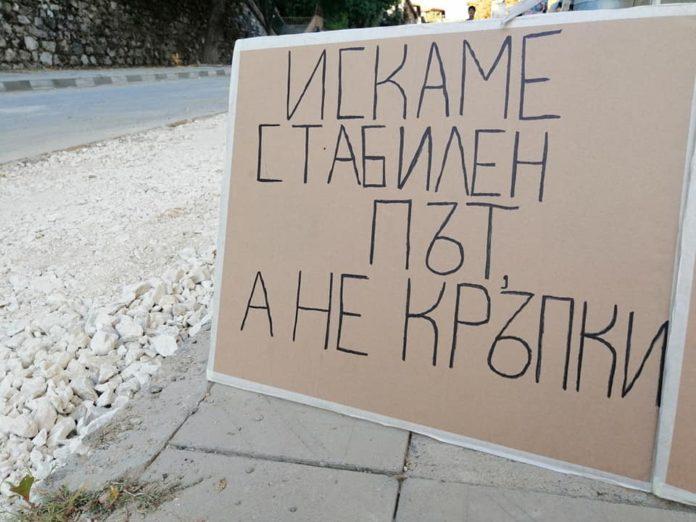 ИСКАМЕ
СТАБИЛЕН
ПЪТ,
А НЕ КРЪПКИ